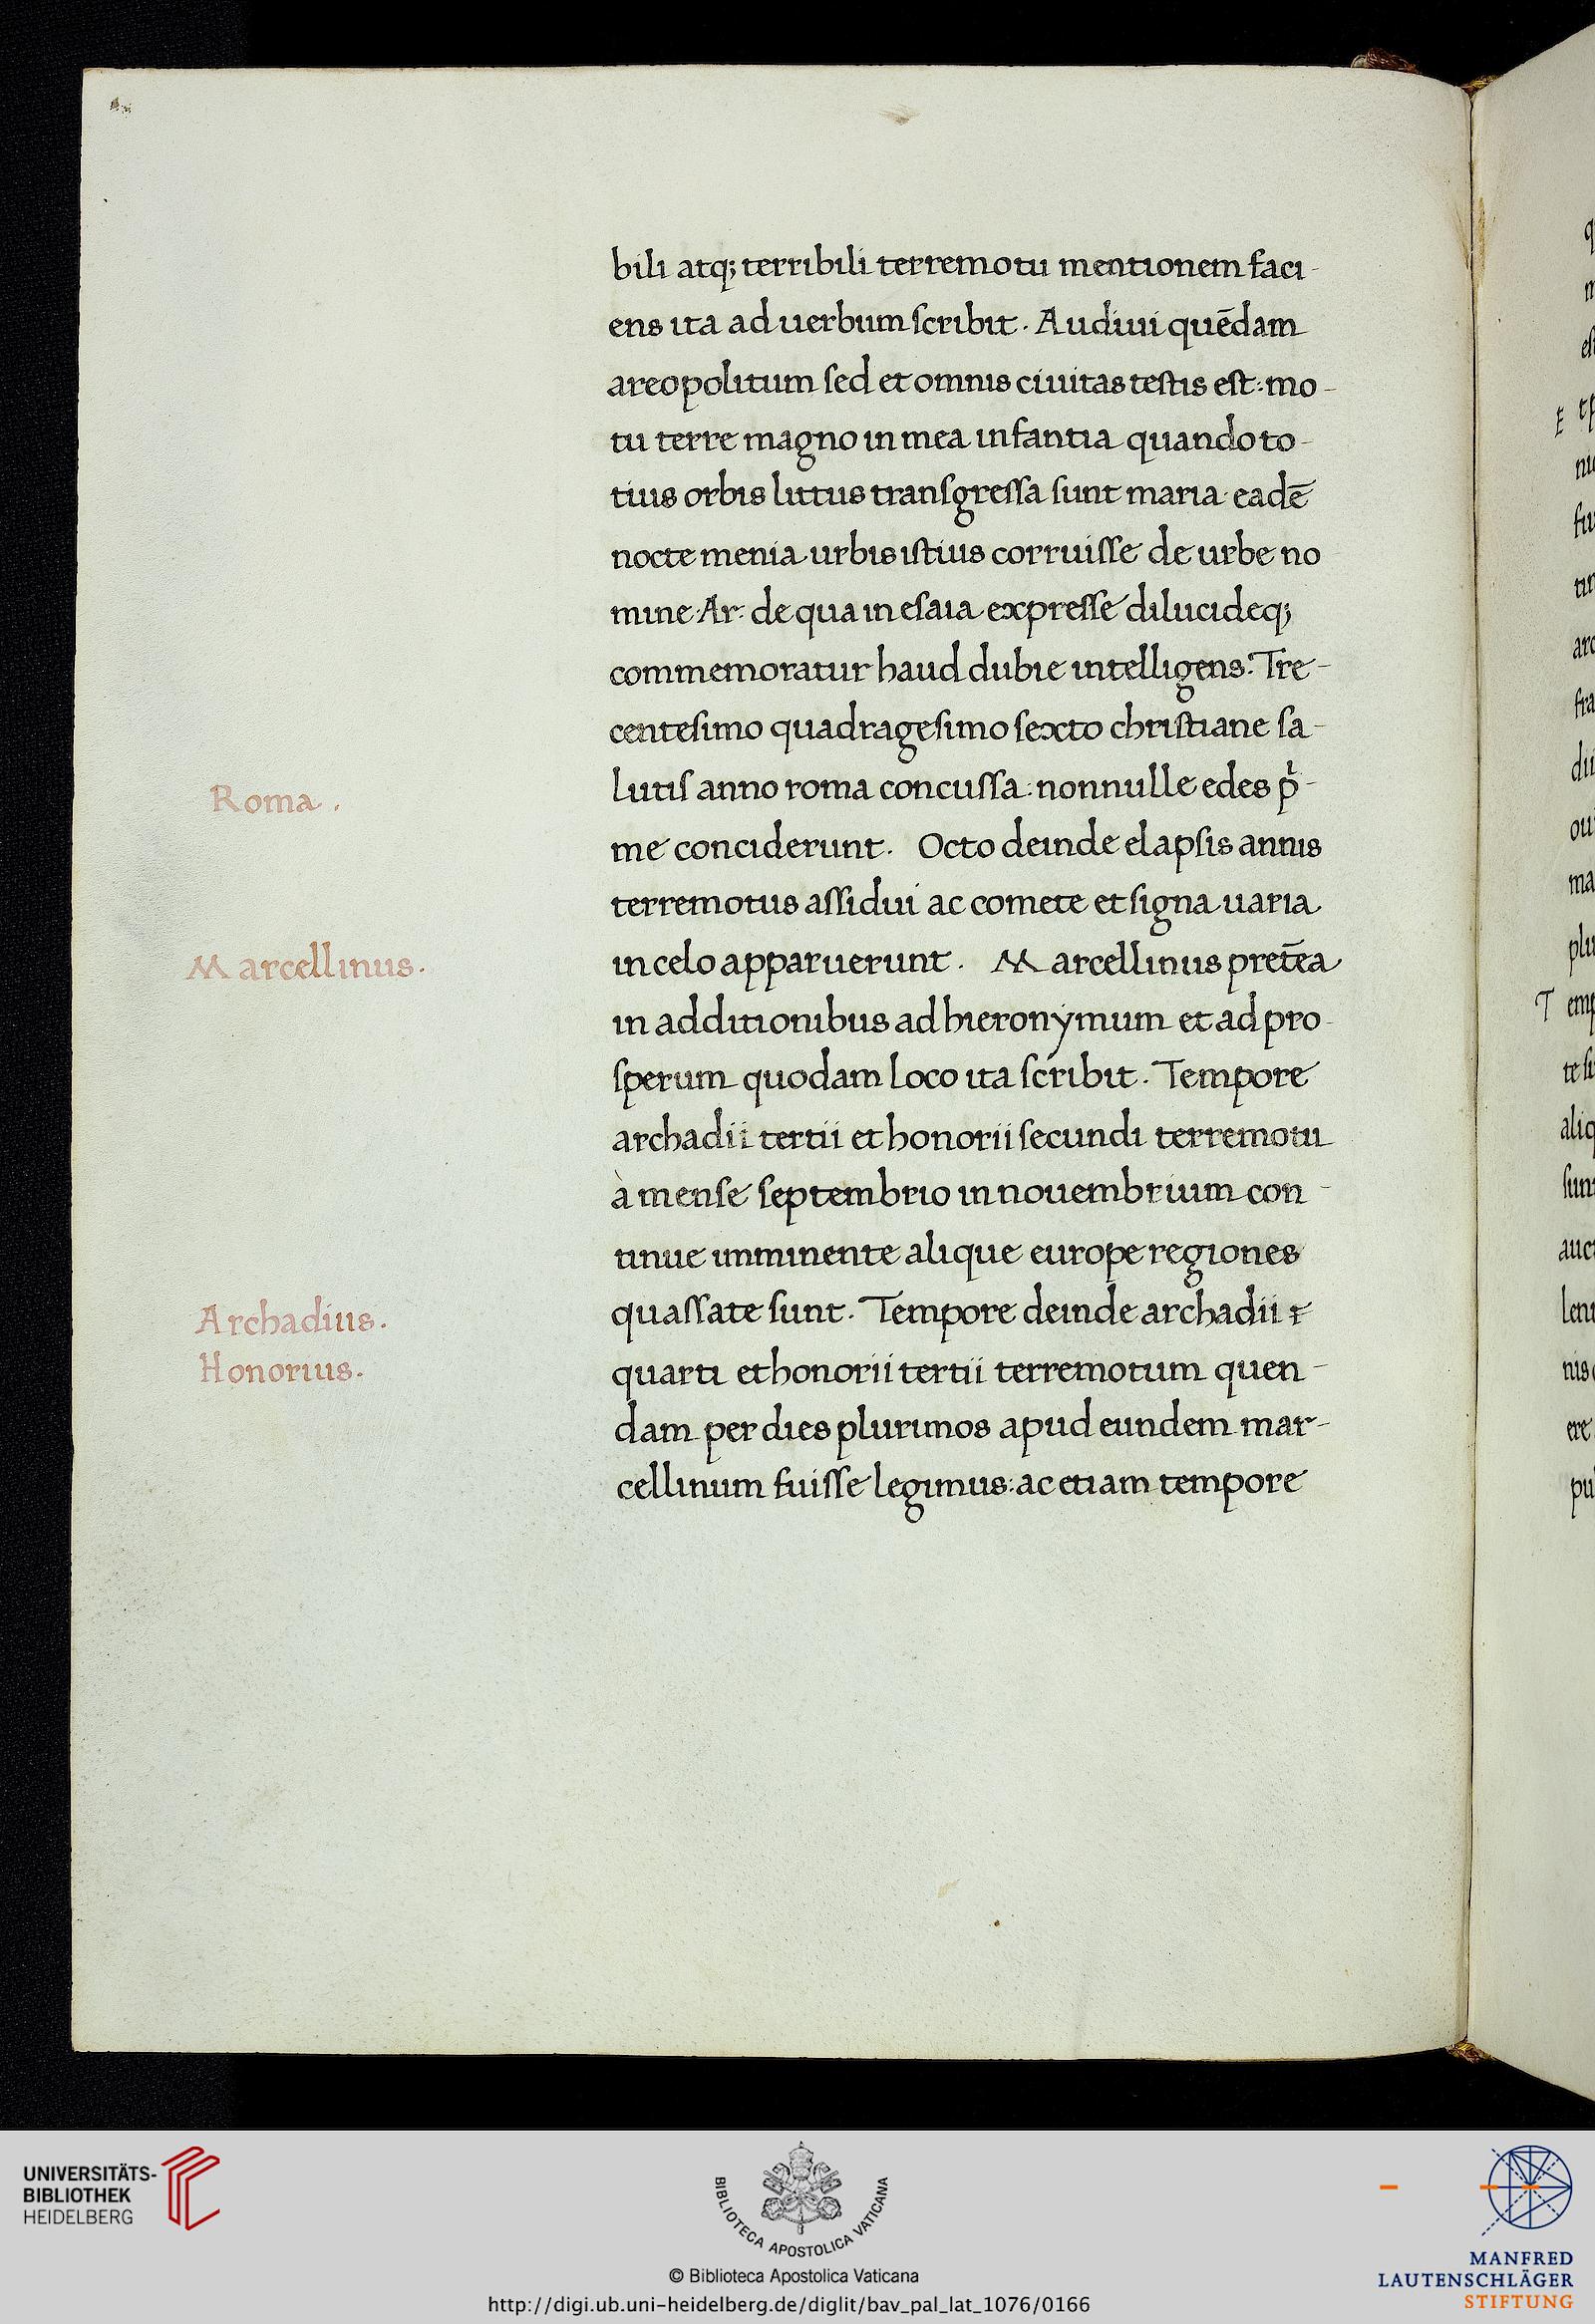 bili atq; terribili terremotu mentionem faci-
ens ita ad uerbum scribit. Audiui quēdam
areopolitum sed et omnis ciuitas testis est: mo-
tu terre magno in mea infantia quando to-
tius orbis littus transgressa sunt maria· eadē
nocte menia urbis istius corruisse de urbe no
mine·Ar· de qua in esaia expresse dilucideq;
commemoratur haud dubie intelligens: Tre-
centesimo quadragesimo sexto christiane sa-
Roma.
lutis anno roma concussa: nonnulle edes p̍-
me conciderunt. Octo deinde elapsis annis
terremotus assidui ac comete et signa uaria
Marcellinus.
in celo apparuerunt. Marcellinus pretēa
in additionibus ad hieronymum et ad pro-
sperum quodam loco ita scribit. Tempore
archadii tertii et honorii secundi terremotu
à mense septembrio in nouembrium con-
tinue imminente alique europe regiones
Archadius.
quassate sunt. Tempore deinde archadii
Honorius.
quarti et honorii tertii terremotum quen-
dam per dies plurimos apud eundem mar-
cellinum fuisse legimus: ac etiam tempore
UNIVERSITÄTS-
BIBLIOTHEK
HEIDELBERG
BIBLIOTECA APOSTOLICA VATICANA
© Biblioteca Apostolica Vaticana
http://digi.ub.uni-heidelberg.de/diglit/bav_pal_lat_1076/0166
MANFRED
LAUTENSCHLÄGER
STIFTUNG